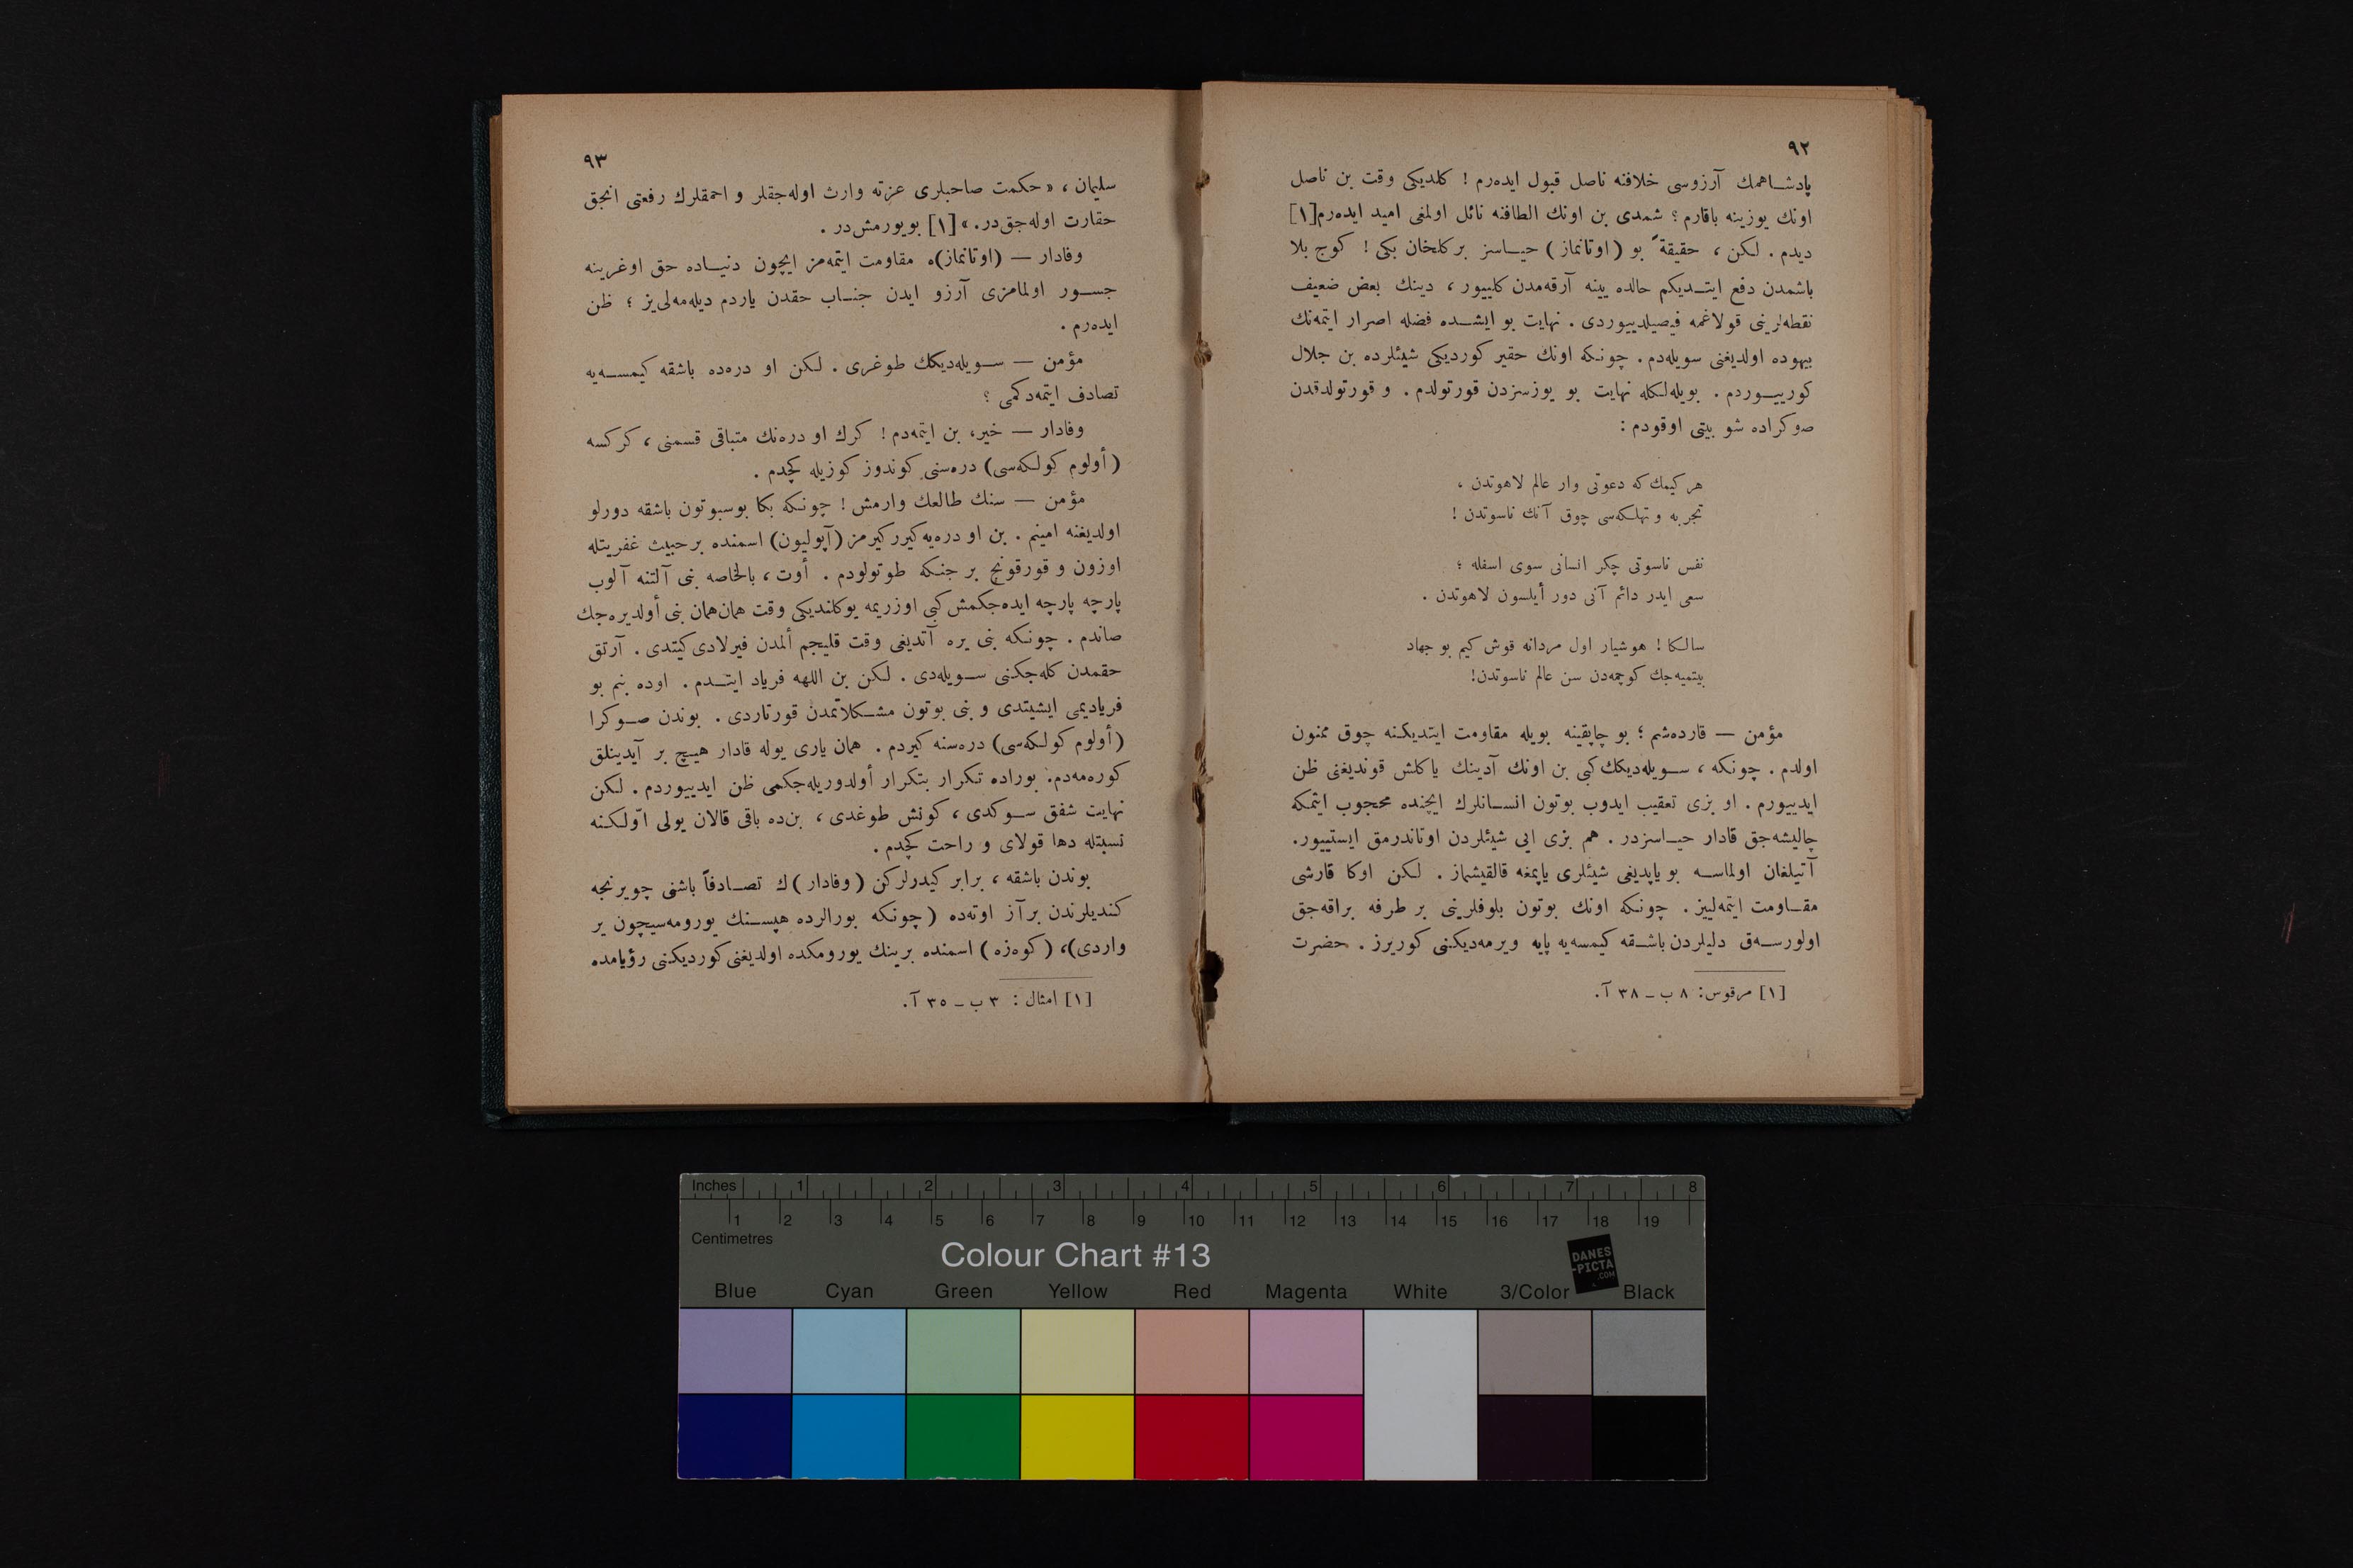 ٩٢
پادشاهمك آرزوسی خلافنه ناصل قبول ایده‌رم ! كلدیكی وقت بن ناصل
اونك یوزینه باقارم ؟ شمدی بن اونك الطافنه نائل اولمغی امید ایده‌رم[١]
دیدم . لكن ، حقیقةً بو ( اوتانماز ) حیاسز بر كلخان بكی ! كوج بلا
باشمدن دفع ایتدیكم حالده یینه آرقه‌مدن كلییور ، دینك بعض ضعیف
نقطه‌لرینی قولاغمه فیصیلدییوردی . نهایت بو ایشده فضله اصرار ایتمه‌نك
بیهوده اولدیغنی سویله‌دم . چونكه اونك حقیر كوردیكی شیئلرده بن جلال
كورییوردم . بویله‌لكله نهایت بو یوزسزدن قورتولدم . و قورتولدقدن
صوكراده شو بیتی اوقودم :
هر كیمك كه دعوتی وار عالم لاهوتدن ،
تجربه و تهلكه‌سی چوق آنك ناسوتدن !
نفس ناسوتی چكر انسانی سوی اسفله ؛
سعی ایدر دائم آنی دور أیلسون لاهوتدن .
سالكا ! هوشیار اول مردانه قوش كیم بو جهاد
بیتمیه‌جك كوچمه‌دن سن عالم ناسوتدن!
مؤمن — قارده‌شم ؛ بو چاپقینه بویله مقاومت ایتدیكنه چوق ممنون
اولدم . چونكه ، سویله‌دیكك كبی بن اونك آدینك یاكلش قوندیغنی ظن
ایدییورم . او بزی تعقیب ایدوب بوتون انسانلرك ایچنده محجوب ایتمكه
چالیشه‌جق قادار حیاسزدر . هم بزی ایی شیئلردن اوتاندرمق ایستییور.
آتیلغان اولماسه بو یاپدیغی شیئلری یاپمغه قالقیشماز . لكن اوكا قارشی
مقاومت ایتمه‌لییز . چونكه اونك بوتون بلوفلرینی بر طرفه براقه‌جق
اولورسه‌ق دلیلردن باشقه كیمسه‌یه پایه ویرمه‌دیكنی كوریرز . حضرت
[١] مرقوس: ٨ ب – ٣٨ آ.
٩٣
سلیمان ، « حكمت صاحبلری عزته وارث اوله‌جقلر و احمقلرك رفعتی انجق
حقارت اوله‌جق‌در. » [١] بویورمش‌در .
وفادار — (اوتانماز)ه مقاومت ایتمه‌مز ایچون دنیاده حق اوغرینه
جسور اولمامزی آرزو ایدن جناب حقدن یاردم دیله‌مه‌لی‌یز ؛ ظن
ایده‌رم .
مؤمن — سویله‌دیكك طوغری . لكن او دره‌ده باشقه كیمسه‌یه
تصادف ایتمه‌دكمی ؟
وفادار — خیر، بن ایتمه‌دم ! كرك او دره‌نك متباقی قسمنی ، كركسه
(أولوم كولكه‌سی) دره‌سنی كوندوز كوزیله كچدم .
مؤمن — سنك طالعك وارمش ! چونكه بكا بوسبوتون باشقه دورلو
اولدیغنه امینم . بن او دره‌یه كیرر كیرمز (آپولیون) اسمنده بر خبیث عفریتله
اوزون و قورقونج بر جنكه طوتولودم . أوت ، بالخاصه بنی آلتنه آلوب
پارچه پارچه ایده‌جكمش كبی اوزریمه یوكلندیكی وقت همان‌همان بنی أولدیره‌جك
صاندم . چونكه بنی یره آتدیغی وقت قلیجم ألمدن فیرلادی كیتدی . آرتق
حقمدن كله‌جكنی سویله‌دی . لكن بن اللهه فریاد ایتدم . اوده بنم بو
فریادیمی ایشیتدی و بنی بوتون مشكلاتمدن قورتاردی . بوندن صوكرا
(أولوم كولكه‌سی) دره‌سنه كیردم . همان یاری یوله قادار هیچ بر آیدینلق
كوره‌مه‌دم. بوراده تكرار بتكرار أولدوریله‌جكمی ظن ایدییوردم . لكن
نهایت شفق سوكدی ، كونش طوغدی ، بن‌ده باقی قالان یولی اوّلكنه
نسبتله دها قولای و راحت كچدم .
بوندن باشقه ، برابر كیدرلركن (وفادار)ك تصادفاً باشنی چویرنجه
كندیلرندن بر آز اوته‌ده ( چونكه بورالرده هپسنك یورومه‌سیچون یر
واردی)، ( كوه‌زه ) اسمنده برینك یورومكده اولدیغنی كوردیكنی رؤیامده
[١] امثال : ٣ ب – ٣٥ آ.
Inches 1 2 3 4 5 6 7 8
1 2 3 4 5 6 7 8 9 10 11 12 13 14 15 16 17 18 19
Centimetres
Colour Chart #13
DANES
-PICTA
.COM
Blue Cyan Green Yellow Red Magenta White 3/Color Black